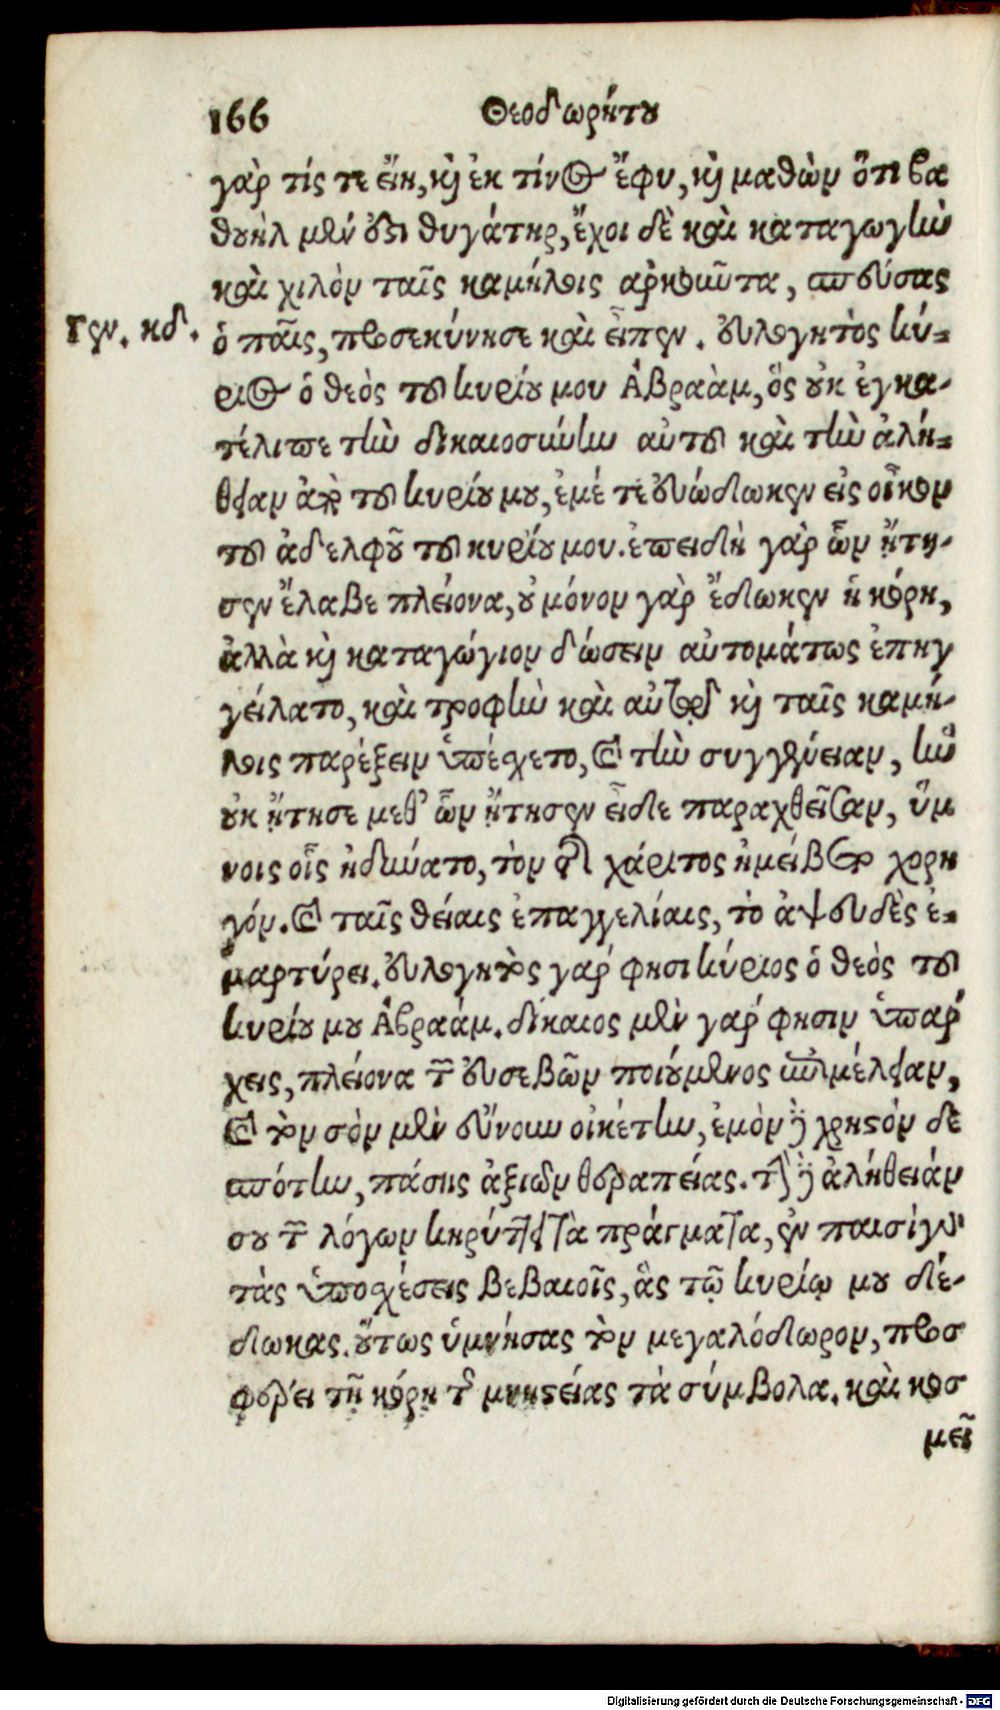 166 Θεοδωρήτου
γὰρ τίς τε εἴη, καὶ ἐκ τίνος ἔφυ, καὶ μαθὼν ὅτι βα
θουὴλ μέν ἐστι θυγάτηρ, ἔχοι δὲ καὶ καταγωγὴν
καὶ χιλὸν ταῖς καμήλοις ἀρκοῦντα, σπεύσας
Γεν. κδ.
ὁ παῖς, προσεκύνησε καὶ εἶπεν. εὐλογητὸς κύ-
ριος ὁ θεὸς τοῦ κυρίου μου Ἀβραὰμ, ὃς οὐκ ἐγκα-
τέλιπε τὴν δικαιοσύνην αὐτοῦ καὶ τὴν ἀλή-
θειαν ἀπὸ τοῦ κυρίου μου, ἐμέ τε εὐώδωκεν εἰς οἶκον
τοῦ ἀδελφοῦ τοῦ κυρίου μου. ἐπειδὴ γὰρ ὧν ᾔτη-
σεν ἔλαβε πλείονα, οὐ μόνον γὰρ ἔδωκεν ἡ κόρη,
ἀλλὰ καὶ καταγώγιον δώσειν αὐτομάτως ἐπηγ
γείλατο, καὶ τροφὴν καὶ αὐτῷ καὶ ταῖς καμή-
λοις παρέξειν ὑπέσχετο, καὶ τὴν συγγένειαν, ἣν
οὐκ ᾔτησε μεθ' ὧν ᾔτησεν εἶδε παραχθεῖσαν, ὕμ
νοις οἷς ἠδύνατο, τὸν τῆς χάριτος ἠμείβετο χορη
γόν. καὶ ταῖς θείαις ἐπαγγελίαις, τὸ ἀψευδὲς ἐ-
μαρτύρει. εὐλογητός γάρ φησι κύριος ὁ θεὸς τοῦ
κυρίου μου Ἀβραάμ. δίκαιος μὲν γάρ φησιν ὑπάρ
χεις, πλείονα τῶν εὐσεβῶν ποιούμενος ἐπιμέλειαν,
καὶ τὸν σὸν μὲν εὔνουν οἰκέτην, ἐμὸν δὲ χρηστὸν δε
σπότην, πάσης ἀξιῶν θεραπείας. τὴν δὲ ἀλήθειάν
σου τῶν λόγων κηρύττει τὰ πράγματα, ἐν παισὶ γὰρ
τὰς ὑποσχέσεις βεβαιοῖς, ἃς τῷ κυρίῳ μου δέ-
δωκας. οὕτως ὑμνήσας τὸν μεγαλόδωρον, προσ
φέρει τῇ κόρῃ τῆς μνηστείας τὰ σύμβολα. καὶ κοσ
μεῖ
Digitalisierung gefördert durch die Deutsche Forschungsgemeinschaft - DFG